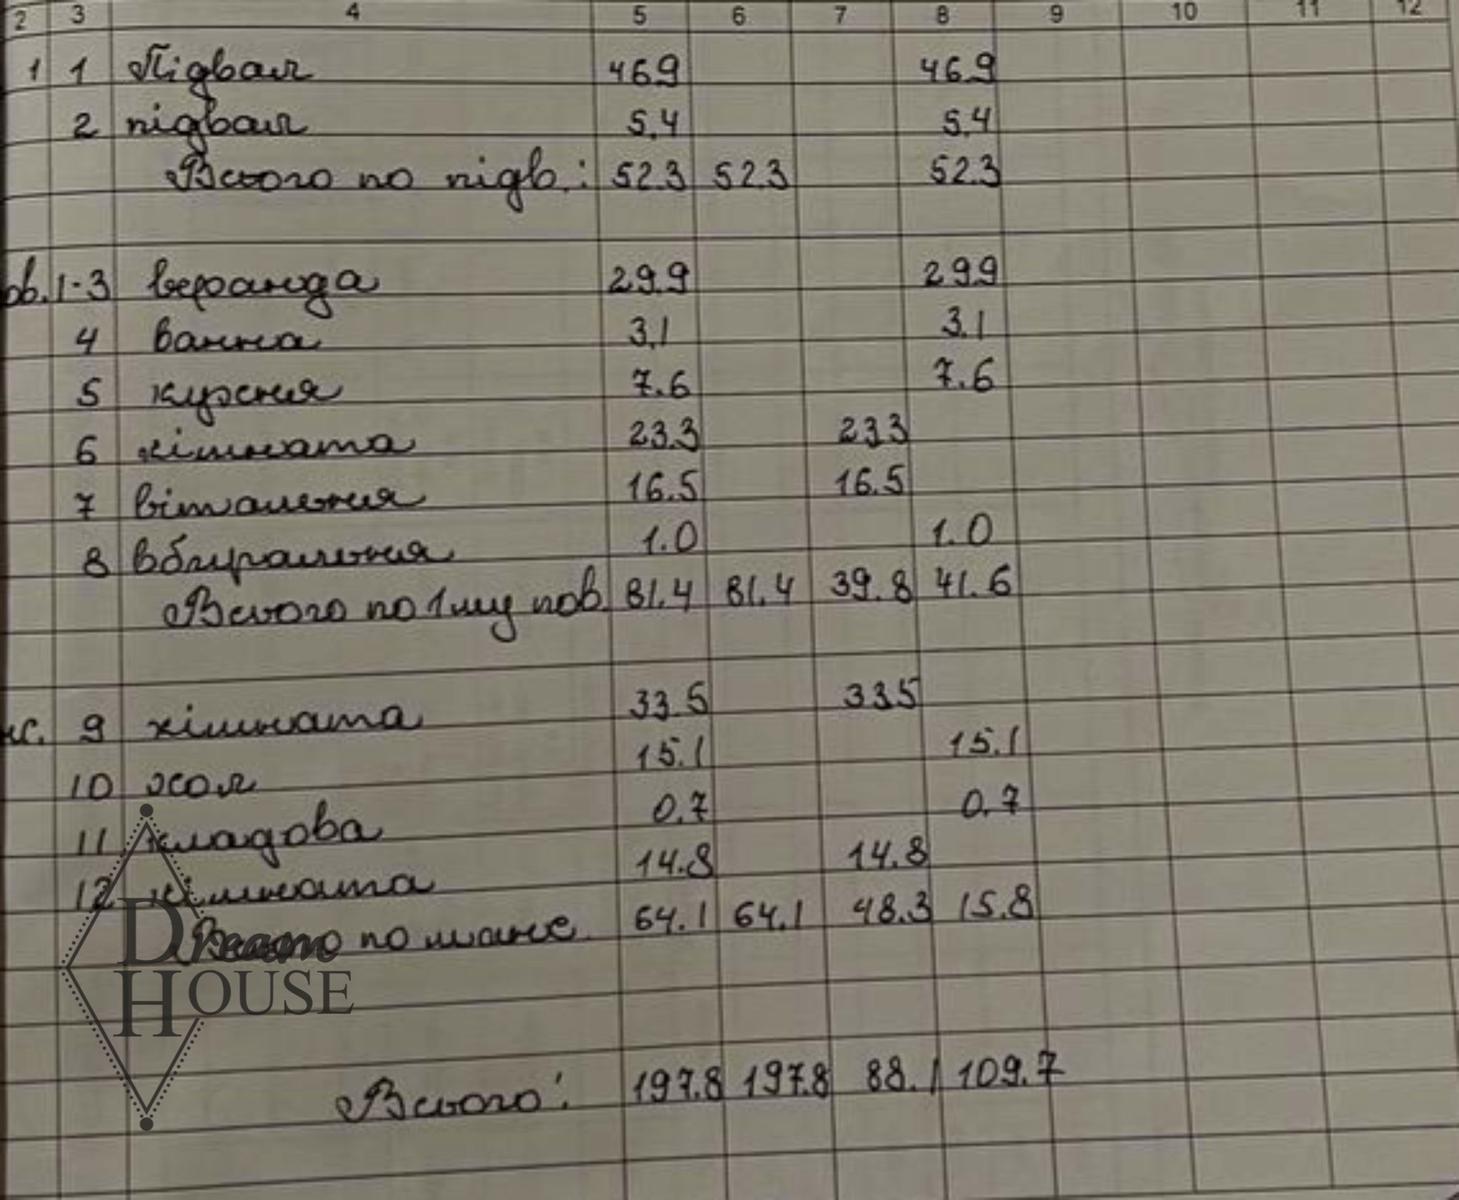 2 3 4 5 6 7 8 9 10 11 12
1 1 Підвал 46.9 46.9
2 підвал 5.4 5.4
Всього по підв.: 52.3 52.3 52.3
ов. 1-3 веранда 29.9 29.9
4 ванна 3.1 3.1
5 кухня 7.6 7.6
6 кімната 23.3 23.3
7 вітальня 16.5 16.5
8 вбиральня 1.0 1.0
Всього по 1му пов. 81.4 81.4 39.8 41.6
нс. 9 кімната 33.5 33.5
10 хол 15.1 15.1
11 кладова 0.7 0.7
12 кімната 14.8 14.8
Всього по манс. 64.1 64.1 48.3 15.8
DREAM
HOUSE
Всього: 197.8 197.8 88.1 109.7